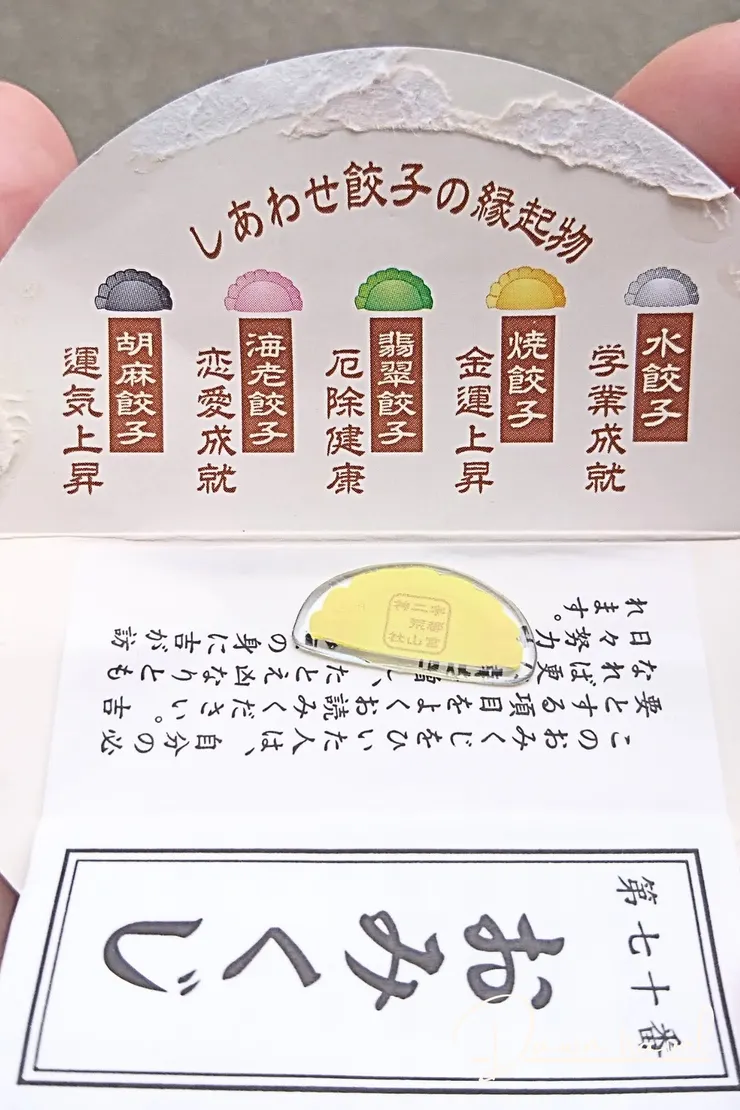 しあわせ餃子の縁起物
水餃子
学業成就
焼餃子
金運上昇
翡翠餃子
厄除健康
海老餃子
恋愛成就
胡麻餃子
運気上昇
宇都宮
二荒山
神社
このおみくじをひいた人は、自分の必
要とする項目をよくお読みください。吉
なれば更 、たとえ凶なりとも
日々努力 の身に吉が訪
れます。
第七十番
おみくじ